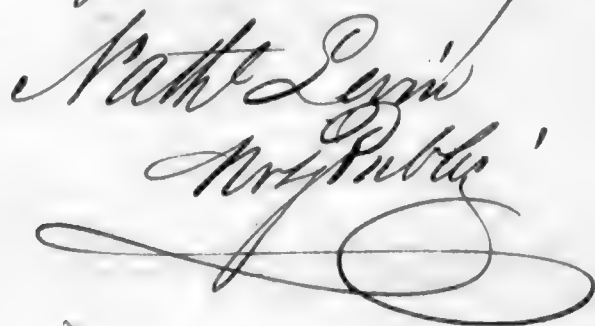 Nathl Levin
Not Public